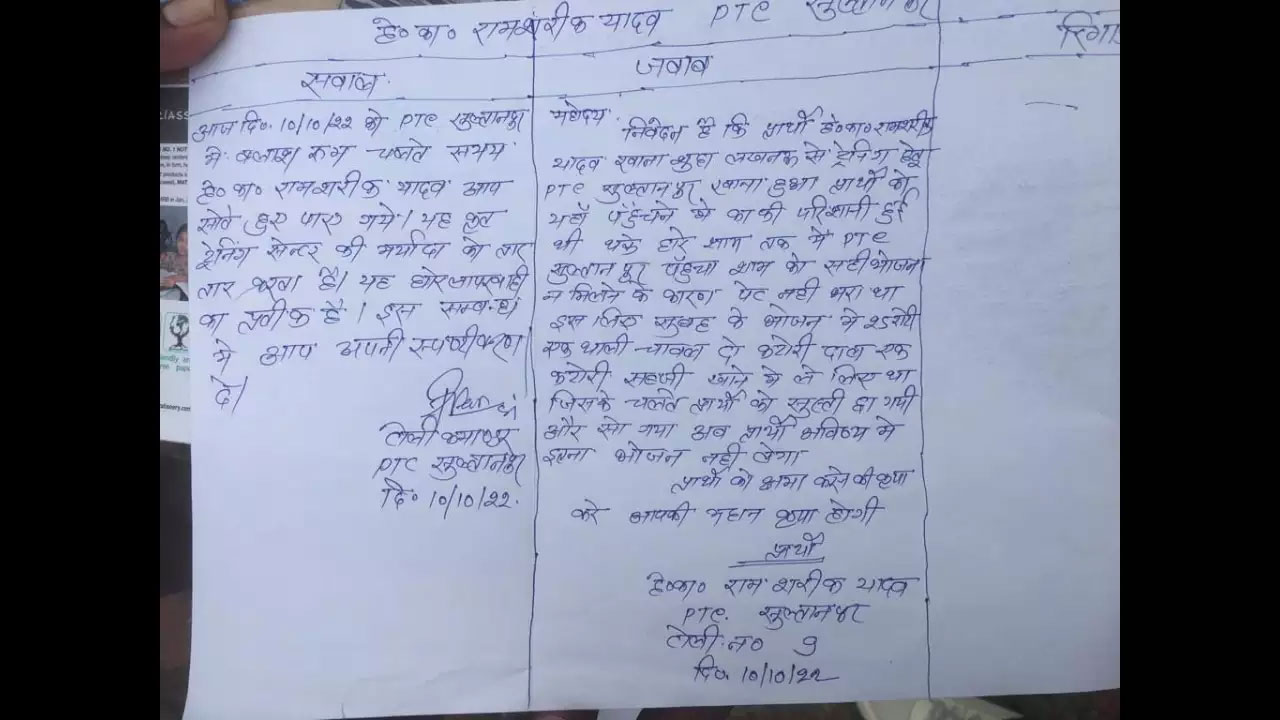 हे० का० रामशरीक यादव PTC सुल्तानपुर
सवाल
जवाब
आज दि० 10/10/22 को PTC सुल्तानपुर
में क्लास रूम चलते समय
हे० का० रामशरीक यादव आप
सोते हुए पाए गये। यह कृत
ट्रेनिंग सेन्टर की मर्यादा को तार
तार करता है। यह घोर लापरवाही
का प्रतीक है। इस सम्बन्ध
मे आप अपनी स्पष्टीकरण
दे।
टोली
PTC सुल्तानपुर
दि० 10/10/22.
महोदय
निवेदन है कि प्रार्थी हे० का० रामशरीक
यादव रवाना शुदा लखनऊ से ट्रेनिंग हेतू
PTC सुल्तानपुर रवाना हुआ प्रार्थी को
यहाँ पँहुचने मे काफी परिशानी हुई
थी थके हारे शाम तक मै PTC
सुल्तानपूर पँहुचा शाम को सही भोजन
न मिलने के कारण पेट नही भरा था
इस लिए सुबह के भोजन मे 25 रोटी
एक थाली चावल दो कटोरी दाल एक
कटोरी सब्जी खाने मे ले लिए था
जिसके चलते प्रार्थी को सुस्ती छा गयी
और सो गया अब प्रार्थी भविष्य मे
इतना भोजन नही लेगा
प्रार्थी को क्षमा करने की कृपा
करे आपकी महान कृपा होगी
प्रार्थी
हे० का० राम शरीक यादव
PTC. सुल्तानपुर
टोली न० 9
दि० 10/10/22